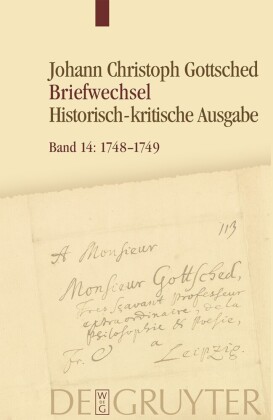 Johann Christoph Gottsched
Briefwechsel
Historisch-kritische Ausgabe
Band 14: 1748–1749
113
A Monsieur
Monsieur Gottsched,
Tres Savant Professeur
extraordinaire, de la
Philosophie & Poesie,
Fr.
a
Leipzig.
DE GRUYTER